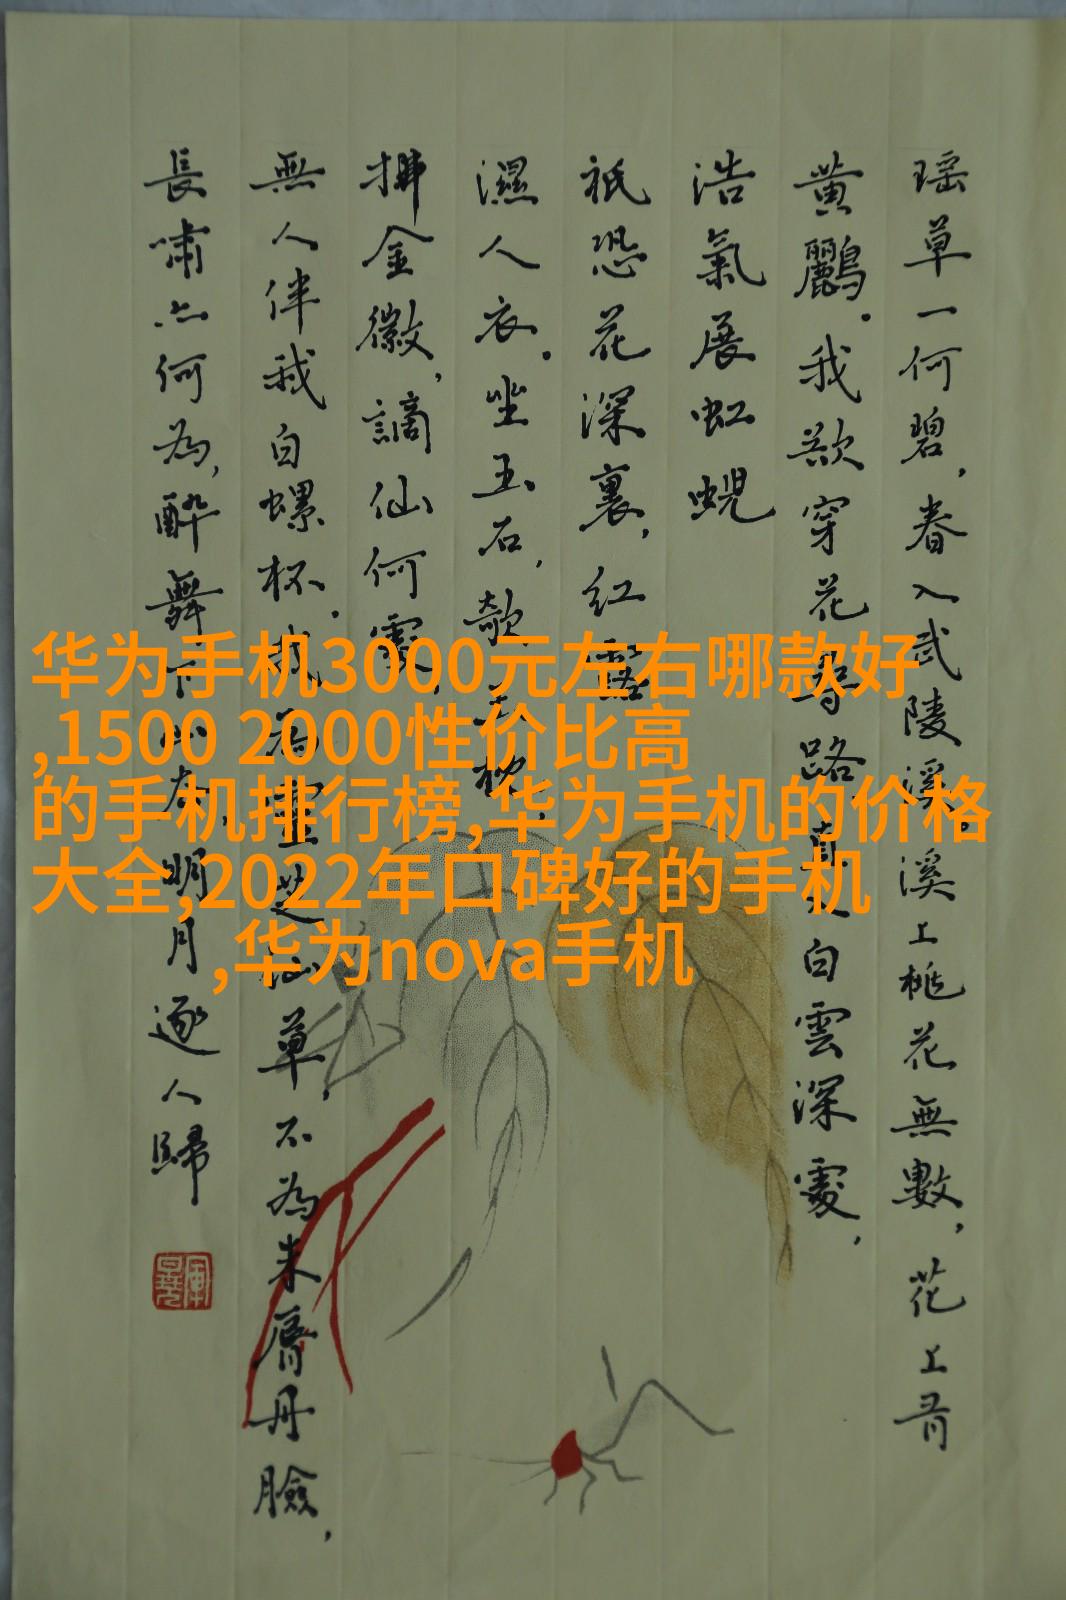 瑶草一何碧，春入武陵溪。溪上桃花無數，花上有
黄鸝。我欲穿花尋路，直入白雲深處，
浩氣展虹蜺
祇恐花深裏，紅露
濕人衣。坐玉石，欹玉枕，
拂金徽，謫仙何處，
無人伴我白螺杯。我為靈芝仙草，不為朱脣丹臉，
長嘯亦何為，醉舞下山去，明月逐人歸
华为手机3000元左右哪款好
,1500 2000性价比高
的手机排行榜,华为手机的价格
大全,2022年口碑好的手机
,华为nova手机